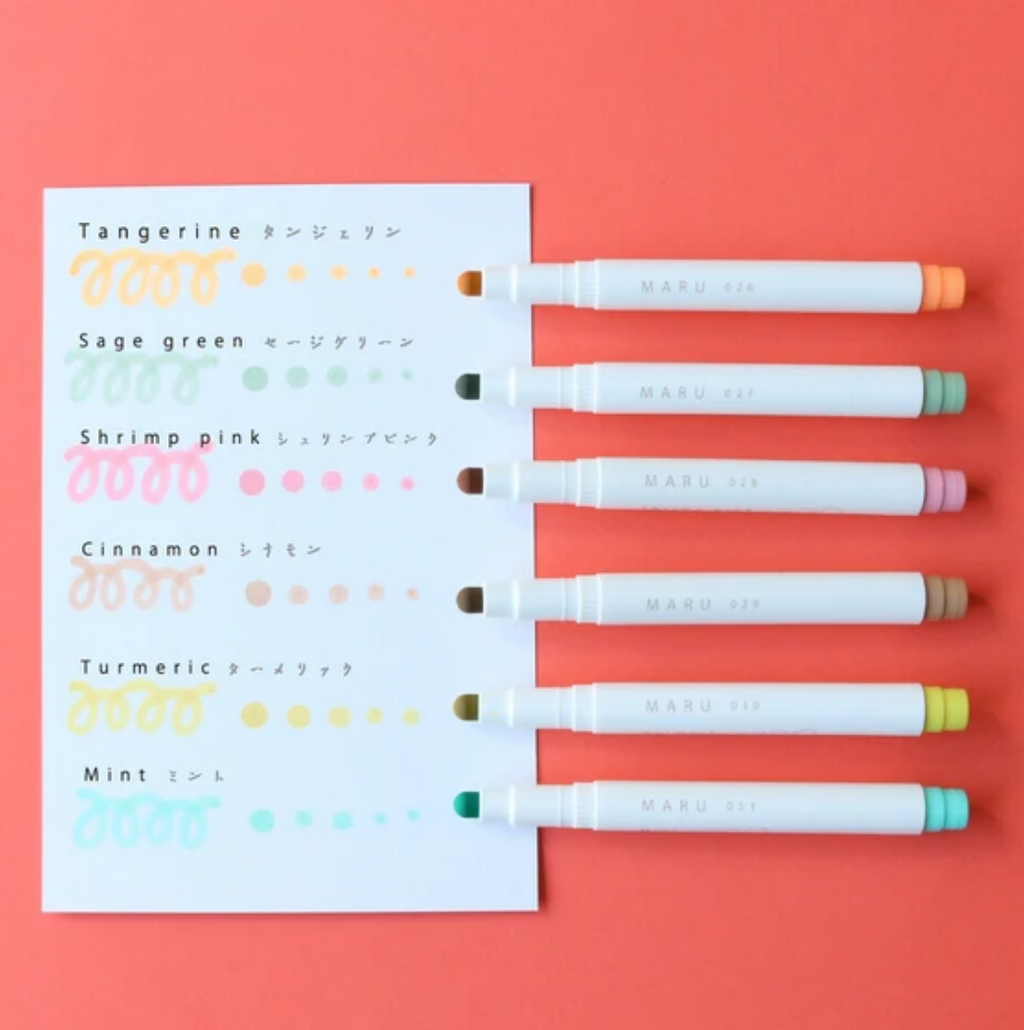 Tangerine タンジェリン
MARU 026
Sage green セージグリーン
MARU 027
Shrimp pink シュリンプピンク
MARU 028
Cinnamon シナモン
MARU 029
Turmeric ターメリック
MARU 030
Mint ミント
MARU 031